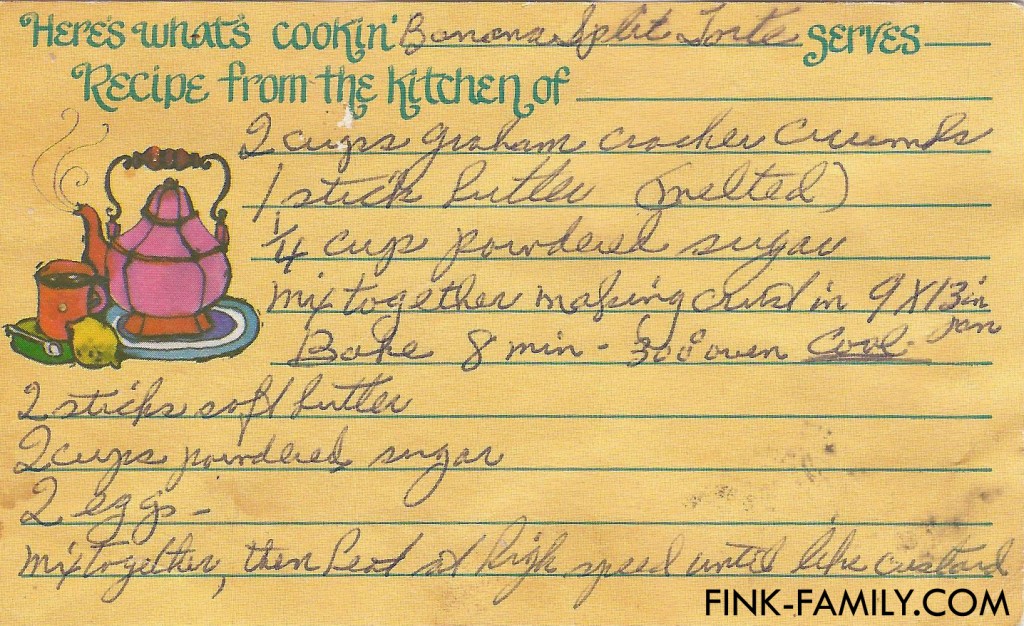 Here's what's cookin' Banana Split Torte serves
Recipe from the kitchen of
2 cups graham cracker crumbs
1 stick butter (melted)
1/4 cup powdered sugar
mix together making crust in 9X13 in pan
Bake 8 min - 300° oven Cool.
2 sticks soft butter
2 cups powdered sugar
2 eggs -
mix together, then beat at high speed until like custard
FINK-FAMILY.COM